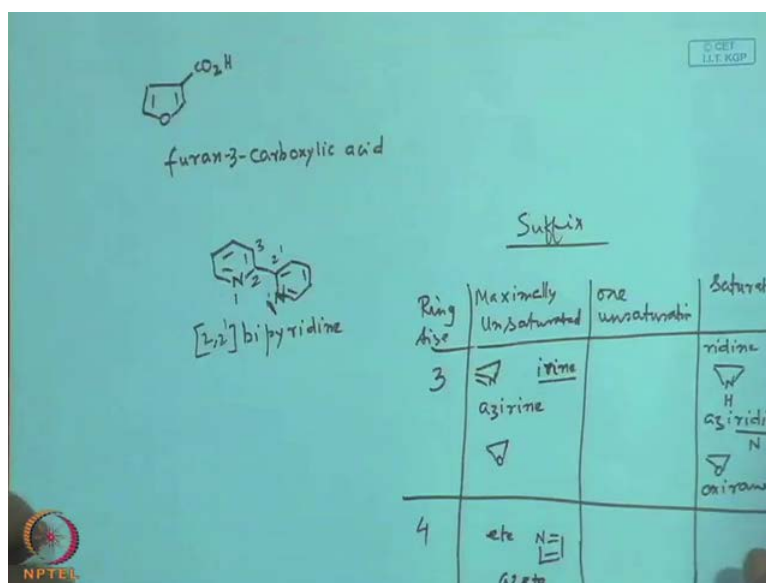 © CET
I.I.T. KGP
CO₂H
O
furan-3-carboxylic acid
3
2'
N
2
1
N
1'
[2,2'] bipyridine
Suffix
Ring Size
Maximally Unsaturated
one unsaturatin
Saturat
3
N
irine
azirine
O
ridine
N
H
aziridi
N
O
oxiran
4
ete
N
azete
NPTEL